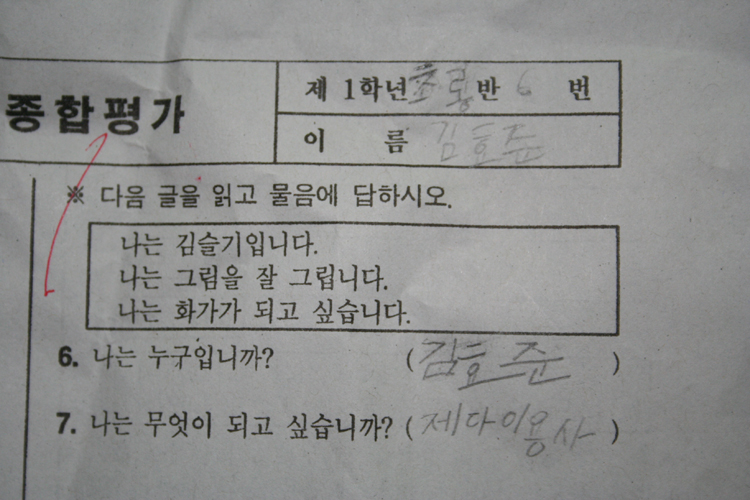 종합평가
제 1학년 초롱 반 6 번
이 름 김효준
※ 다음 글을 읽고 물음에 답하시오.
나는 김슬기입니다.
나는 그림을 잘 그립니다.
나는 화가가 되고 싶습니다.
6. 나는 누구입니까? (김효준)
7. 나는 무엇이 되고 싶습니까? (제다이용사)